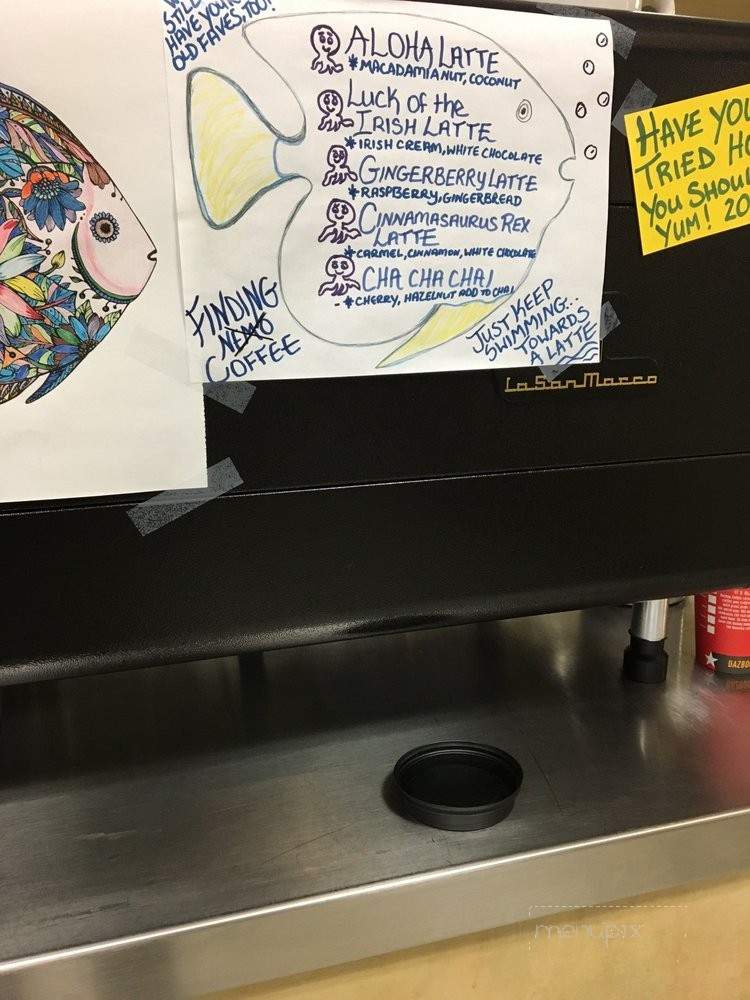 STILL
HAVE YOUR
OLD FAVES, TOO!
ALOHA LATTE
*MACADAMIA NUT, COCONUT
LUCK OF THE
IRISH LATTE
*IRISH CREAM, WHITE CHOCOLATE
GINGERBERRY LATTE
*RASPBERRY, GINGERBREAD
CINNAMASAURUS REX
LATTE
*CARMEL, CINNAMON, WHITE CHOCOLATE
CHA CHA CHAI
*CHERRY, HAZELNUT ADD TO CHAI
FINDING
NEMO
COFFEE
JUST KEEP
SWIMMING...
TOWARDS
A LATTE
HAVE YOU
TRIED
YOU SHOUL
YUM! 20
La San Marco
DAZBO
menupix